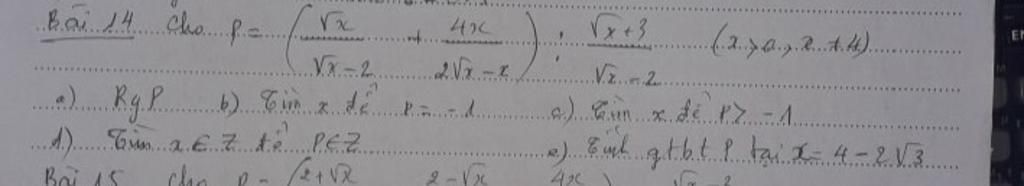 Bài 14 Cho P = (√x / (√x - 2) + 4x / (2√x - x)) : (√x + 3) / (√x - 2) (x > 0, x ≠ 4)
a) RgP b) Tìm x để P = -1 c) Tìm x để P > -1
d) Tìm x ∈ Z để P ∈ Z e) Tính gtbt P tại x = 4 - 2√3
Bài 15 Cho P = (2 + √x 2 - √x 4x